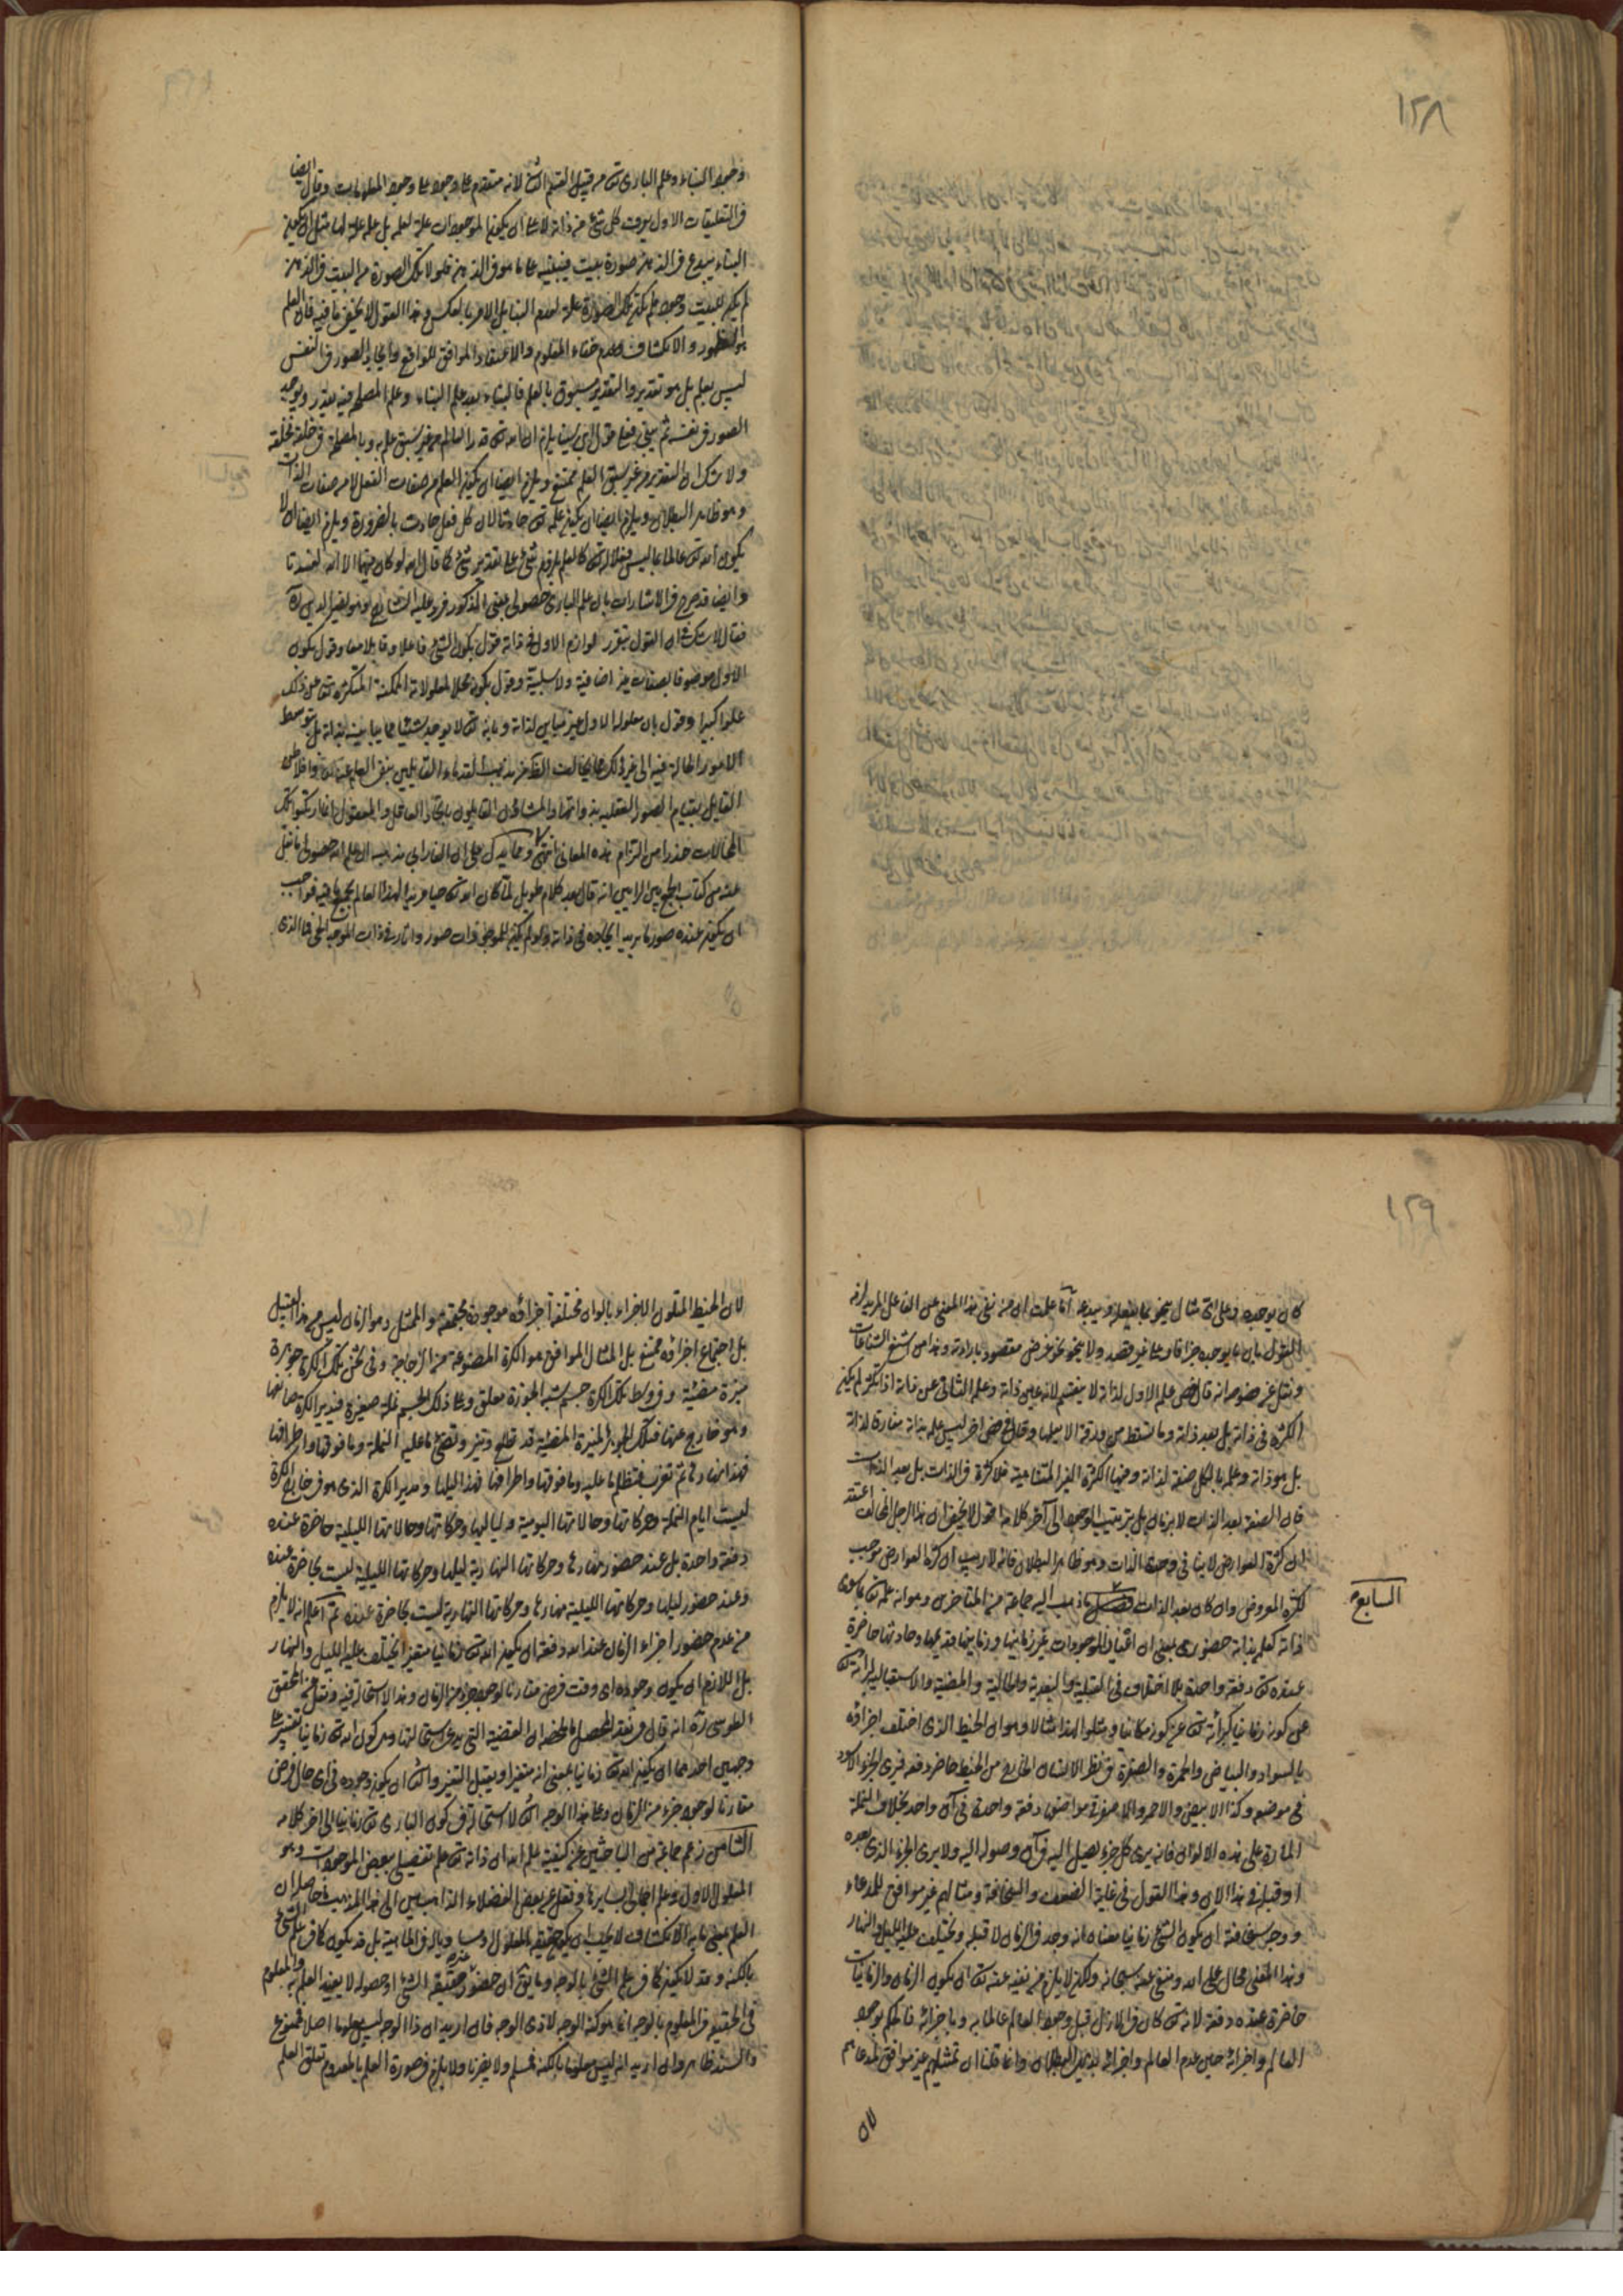 ١٢٨
وجود البناء وعلم الباري تعالى من قبيل القسم الثاني لانه متقدم على وجود المعلومات وقال ايضا
في التعليقات الاول يعرف كل شئ من ذاته لا على ان يكون الموجودات علة لعلمه بل علمه علة لها مثل ان يكون
البناء يبدع في الذهن صورة بيت فيبنيه على ما هو في الذهن فلولا تلك الصورة من البيت في الذهن
لم يكن للبيت وجود فلم يكن تلك الصورة علة لعلم البناء بل الامر بالعكس وهذا القول لا يخفى ما فيه فان العلم
هو الظهور والانكشاف وعدم خفاء المعلوم والاعتقاد الموافق للواقع وايجاد الصور في النفس
ليس بعلم بل هو تقدير والتقدير مسبوق بالعلم فالبناء بعد علم البناء وعلم المصلحة فيه يقدر ويوجد
الصور في نفسه ثم يبني فعلى قول ابن سينا يلزم ان الله تعالى قدر العالم من غير سبق علم به وبالمصلحة في خلقه فخلقه
ولا شك ان التقدير من غير سبق العلم ممتنع ويلزم ايضا ان يكون العلم من صفات الفعل لا من صفات الذات
وهو ظاهر البطلان ويلزم ايضا ان يكون علمه تعالى حادثا لان كل فعل حادث بالضرورة ويلزم ايضا ان لا
يكون الله تعالى عالما بما ليس فعلا له تعالى كالعلم بلزوم شئ على تقدير شئ كما قال الله لو كان فيهما الهة الا الله لفسدتا
وايضا قد صرح في الاشارات بان علم الباري حصولي بمعنى المذكور فرد عليه الشارح وهو نصير الدين ره
فقال لا شك ان القول بتقرر لوازم الاول في ذاته قول بكون الشئ فاعلا وقابلا معا وقول بكون
الاول موصوفا بصفات غير اضافية ولا سلبية وقول بكونه محلا لمعلولاته الممكنة المتكثرة تعالى عن ذلك
علوا كبيرا وقول بان معلوله الاول غير مباين لذاته وبانه تعالى لا يوجد شيئا مما يباينه بذاته بل بتوسط
الامور الحالة فيه الى غير ذلك مما يخالف الظاهر من مذهب القدماء القائلين بنفي العلم عنه تعالى وافلاطن
القائل بقيام الصور العقلية بذواتها والمشاؤن القائلون باتحاد العاقل والمعقول انما ارتكبوا تلك
المحالات حذرا من التزام هذه المعاني انتهى ومما يدل على ان الفارابي مذهبه ان علم الله حصولي ما نقل
عنه من كتاب الجمع بين الرايين انه قال بعد كلام طويل لما كان الله تعالى حيا مريدا لهذا العالم بجميع ما فيه فواجب
ان يكون عنده صور ما يريد ايجاده في ذاته ولو لم يكن للموجودات صور واثار في ذات الموجد الحي فما الذي
١٢٩
كان يوجده وعلى اي مثال ينحو بما يفعله ويبدعه اما علمت ان من نفى هذا المعنى عن الفاعل المريد لزمه
القول بان ما يوجده جزافا وعلى غير قصد ولا ينحو نحو غرض مقصود بارادته وهذا من اشنع الشناعات
ونقل عن فصوصه انه قال فص علم الاول لذاته لا ينقسم لانه عين ذاته وعلمه الثاني عن ذاته اذا تكثر لم يكن
الكثرة في ذاته بل بعد ذاته وما تسقط من ورقة الا يعلمها وقال في فص اخر ليس علمه بذاته مفارقا لذاته
بل هو ذاته وعلمه بالكل صفة لذاته وفيها الكثرة الغير المتناهية فلا كثرة في الذات بل بعد الذات
فان الصفة بعد الذات لا بزمان بل بترتيب الوجود الى آخر كلامه اقول لا يخفى ان هذا الرجل المخالف اعتقد
ان كثرة العوارض لا ينافي وحدة الذات وهو ظاهر البطلان فانه لا ريب ان كثرة العوارض موجب
لكثرة المعروض وان كان بعد الذات ما ذهب اليه جماعة من المتاخرين وهو انه علمه تعالى بما سوى
السابع
ذاته كعلمه بذاته حضوري بمعنى ان اعيان الموجودات غير زمانيها وزمانيها قديمها وحادثها حاضرة
عنده تعالى دفعة واحدة بلا اختلاف في القبلية والبعدية والحالية والمضية والاستقبالية لبرائته تعالى
عن كونه زمانيا كبرائته تعالى عن كونه مكانيا ومثلوا لهذا مثالا وهو ان الخيط الذي اختلف اجزاؤه
بالسواد والبياض والحمرة والصفرة في نظر الانسان الخارج من الخيط حاضر دفعة فيرى الجزء الاسود
في موضعه وكذا الابيض والاحمر والاصفر في مواضعها دفعة واحدة في آن واحد بخلاف النملة
المارة على هذه الالوان فانه يرى كل جزء يصل اليه في آن وصوله اليه ولا يرى الجزء الذي بعده
او قبله في هذا الان وهذا القول في غاية الضعف والسخافة ومثالهم غير موافق للمدعاء
ووجه سخافته ان يكون الشئ زمانيا معناه انه وجد في الزمان لا قبله ويختلف عليه الليل والنهار
وهذا المعنى محال على الله ومنفي عنه سبحانه ولكن لا يلزم من نفيه عنه تعالى ان يكون الزمان والزمانيات
حاضرة عنده دفعة لانه تعالى كان في الازل قبل وجود العالم عالما به وباجزائه فالحكم بوجود
العالم واجزائه حين عدم العالم واجزائه بديهي البطلان وانما قلنا ان تمثيلهم غير موافق لمدعاهم
لان الخيط المتلون الاجزاء بالوان مختلفة اجزاؤه موجودة مجتمعة والممثل وهو الزمان ليس من هذا القبيل
بل اجتماع اجزائه ممتنع بل المثال الموافق هو الكرة المصنوعة من الزجاجة وفي ثخن تلك الكرة جوزة
منيرة مضيئة وفي وسط تلك الكرة جسم شبه الجوزة معلق وعلى ذلك الجسم نملة صغيرة فيدير الكرة صانعها
وهو خارج عنها فتلك الجوزة المنيرة المضيئة قد تطلع وتنير وتضئ ما عليه النملة وما فوقها واطرافها
فهذا نهارها ثم تغرب فتظلم ما عليه وما فوقها واطرافها فهذا ليلها ومدير الكرة الذي هو في خارج الكرة
ليست ايام النملة وحركاتها وحالاتها اليومية ولياليها وحركاتها وحالاتها الليلية حاضرة عنده
دفعة واحدة بل عند حضور نهارها وحركاتها النهارية ليلها وحركاتها الليلية ليست بحاضرة عنده
وعند حضور ليلها وحركاتها الليلية نهارها وحركاتها النهارية ليست بحاضرة عنده ثم اعلم انه لا يلزم
من عدم حضور اجزاء الزمان عند الله دفعة ان يكون الله تعالى زمانيا متغيرا يختلف عليه الليل والنهار
بل اللازم ان يكون وجوده اي وقت فرض مقارنا لوجود جزء من الزمان وهذا لا استحالة فيه ونقل عن المحقق
الطوسي ره انه قال في نقد المحصل ما ملخصه ان القضية التي يدعى استحالتها وهي كون الله تعالى زمانيا تفسر على
وجهين احدهما ان يكون الله تعالى زمانيا بمعنى انه متغير او يقبل التغير والثاني ان يكون وجوده في اي حال فرض
مقارنا لوجود جزء من الزمان وعلى هذا الوجه الثاني لا استحالة في كون الباري تعالى زمانيا الى اخر كلامه
الثامن زعم جماعة من الباحثين عن كيفية علم الله ان ذاته تعالى علم تفصيلي ببعض الموجودات وهو
المعلول الاول وعلم اجمالي بسايرها ونقل عن بعض الفضلاء الذاهبين الى هذا المذهب ما حاصله ان
العلم بمعنى ما به الانكشاف لا يجب ان يكون حقيقة المعلول ومساويا له في الماهية بل قد يكون كما في علم الشئ
بالكنه وقد لا يكون كما في علم الشئ بالوجه وما يق ان حضور غير حقيقة الشئ او حصوله لا يفيد العلم به والمعلوم
في الحقيقة في المعلوم بالوجه انما هو كنه الوجه لا ذي الوجه فان اريد ان ذا الوجه ليس معلوما اصلا فممنوع
والسند ظاهر وان اريد انه ليس معلوما بالكنه فمسلم ولا يضرنا ولا يلزم في صورة العلم بالمعدوم تعلق العلم